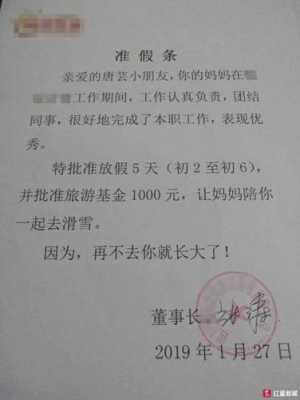 准假条
亲爱的唐芸小朋友，你的妈妈在
工作期间，工作认真负责，团结
同事，很好地完成了本职工作，表现优
秀。
特批准放假 5 天（初 2 至初 6），
并批准旅游基金 1000 元，让妈妈陪你
一起去滑雪。
因为，再不去你就长大了！
董事长
2019 年 1 月 27 日
红星新闻